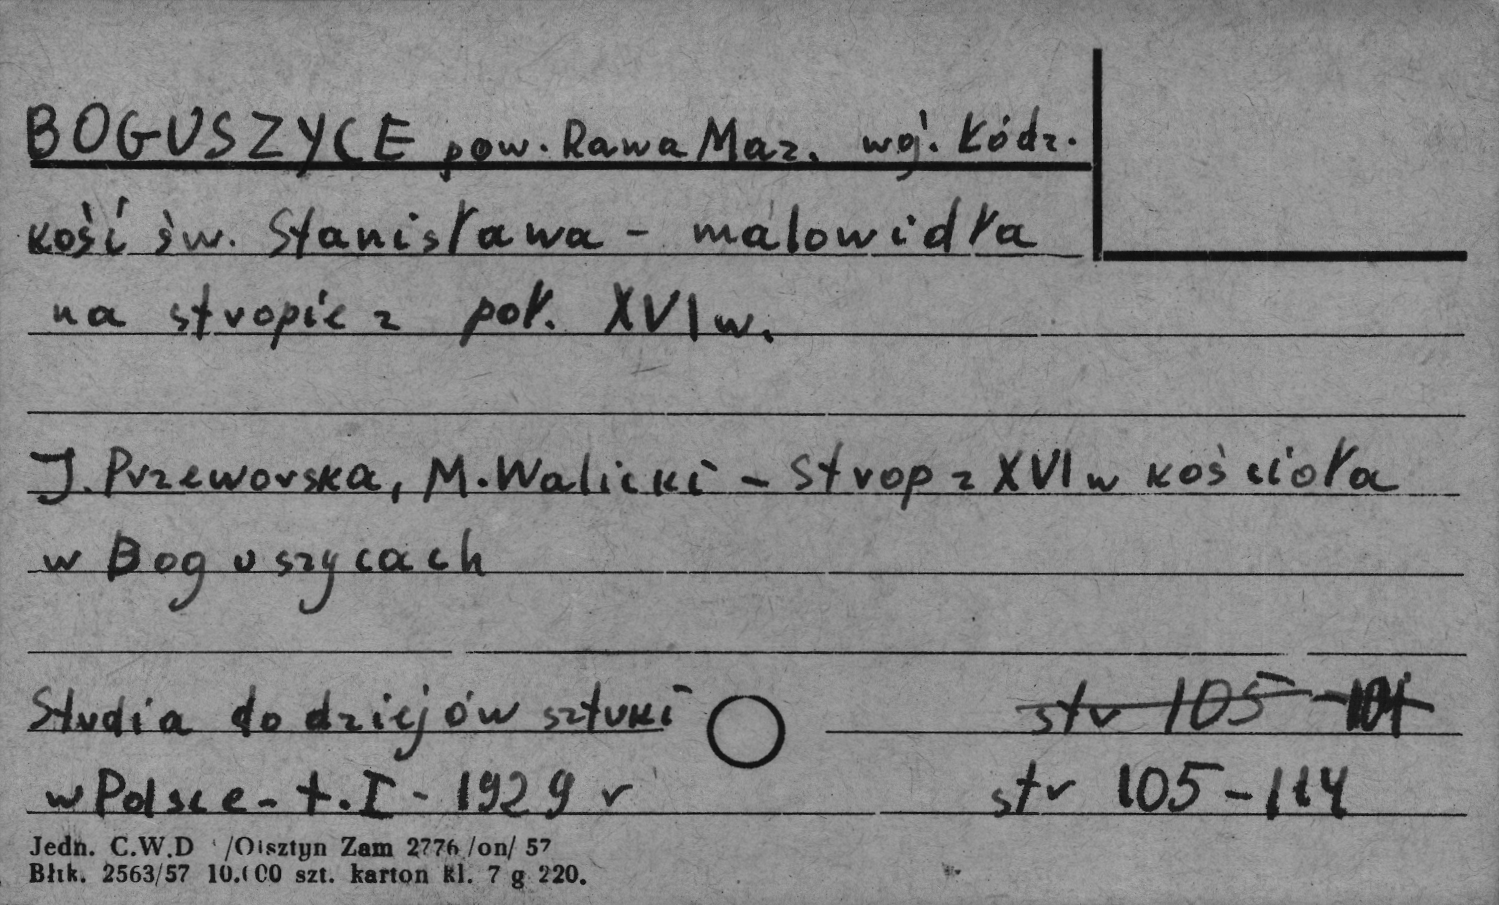 BOGUSZYCE pow. Rawa Maz. woj. Łódz.
kość św. Stanisława - malowidła
na stropie z poł. XVI w.
J. Przeworska, M. Walicki - Strop z XVI w kościoła
w Boguszycach
Studia do dziejów sztuki str 105-101
w Polsce - t. I - 1929 r str 105-114
Jedn. C.W.D /Olsztyn Zam 2776/on/57
Błtk. 2563/57 10.000 szt. karton kl. 7 g 220.